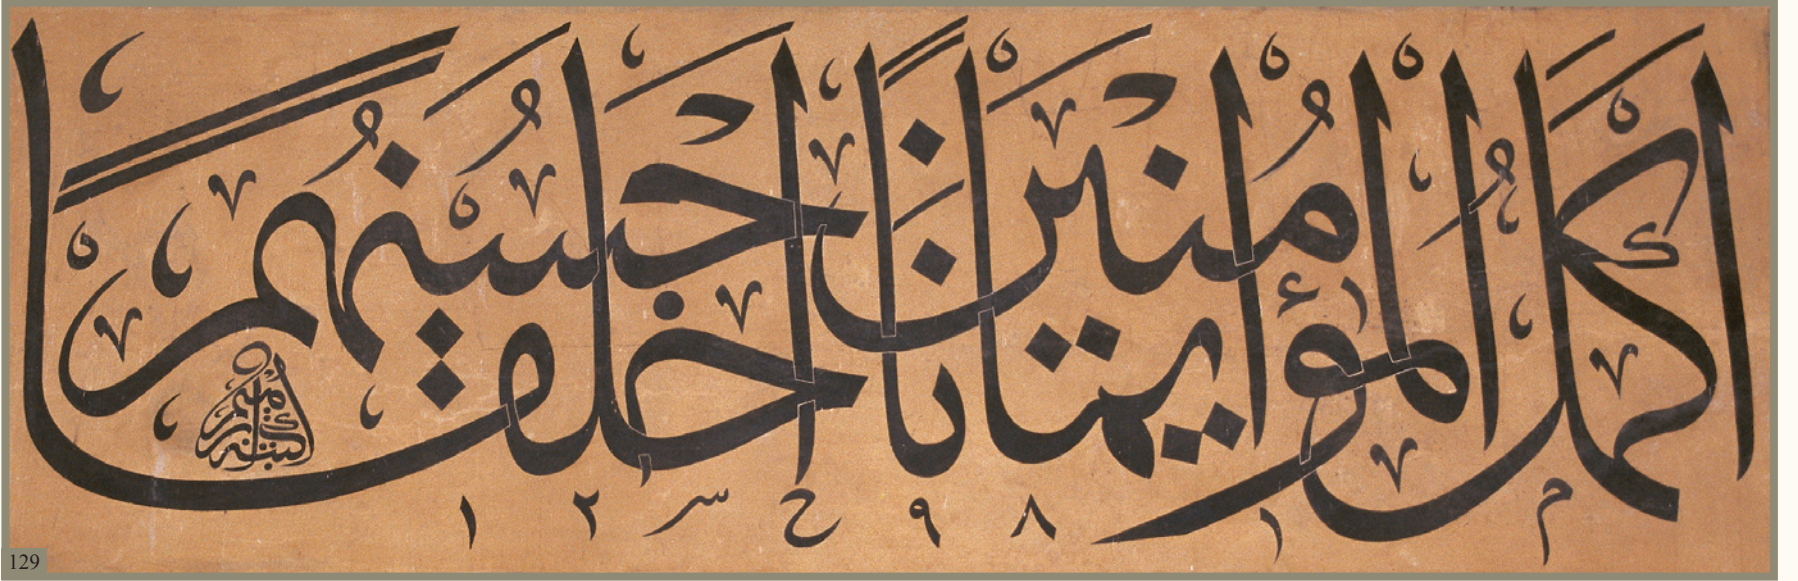 اَكْمَلُ الْمُؤْمِنِينَ اِيمَانًا اَحْسَنُهُمْ خُلُقًا
١٢٩٨
129